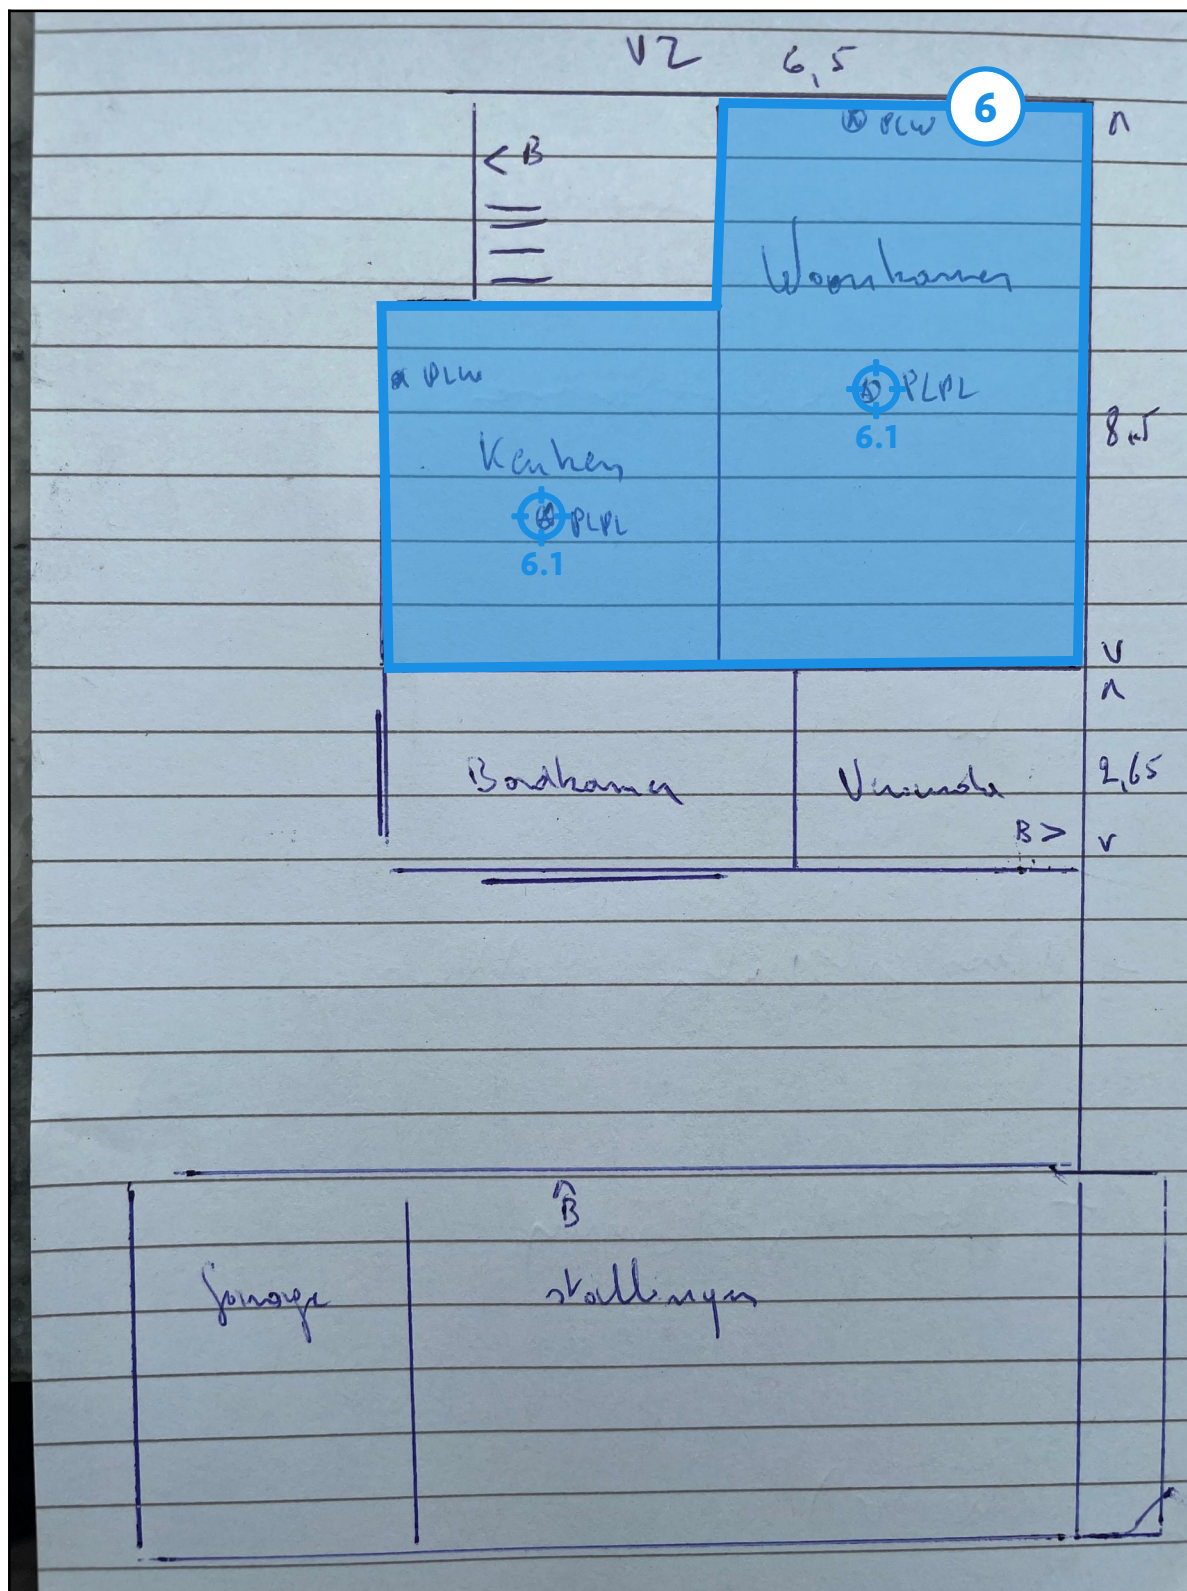 VZ 6,5
6
PLW
< B
Woonkamer
PLW
PLPL
6.1
8,5
Keuken
PLPL
6.1
Badkamer
Veranda
2,65
B >
B
Garage
stallingen